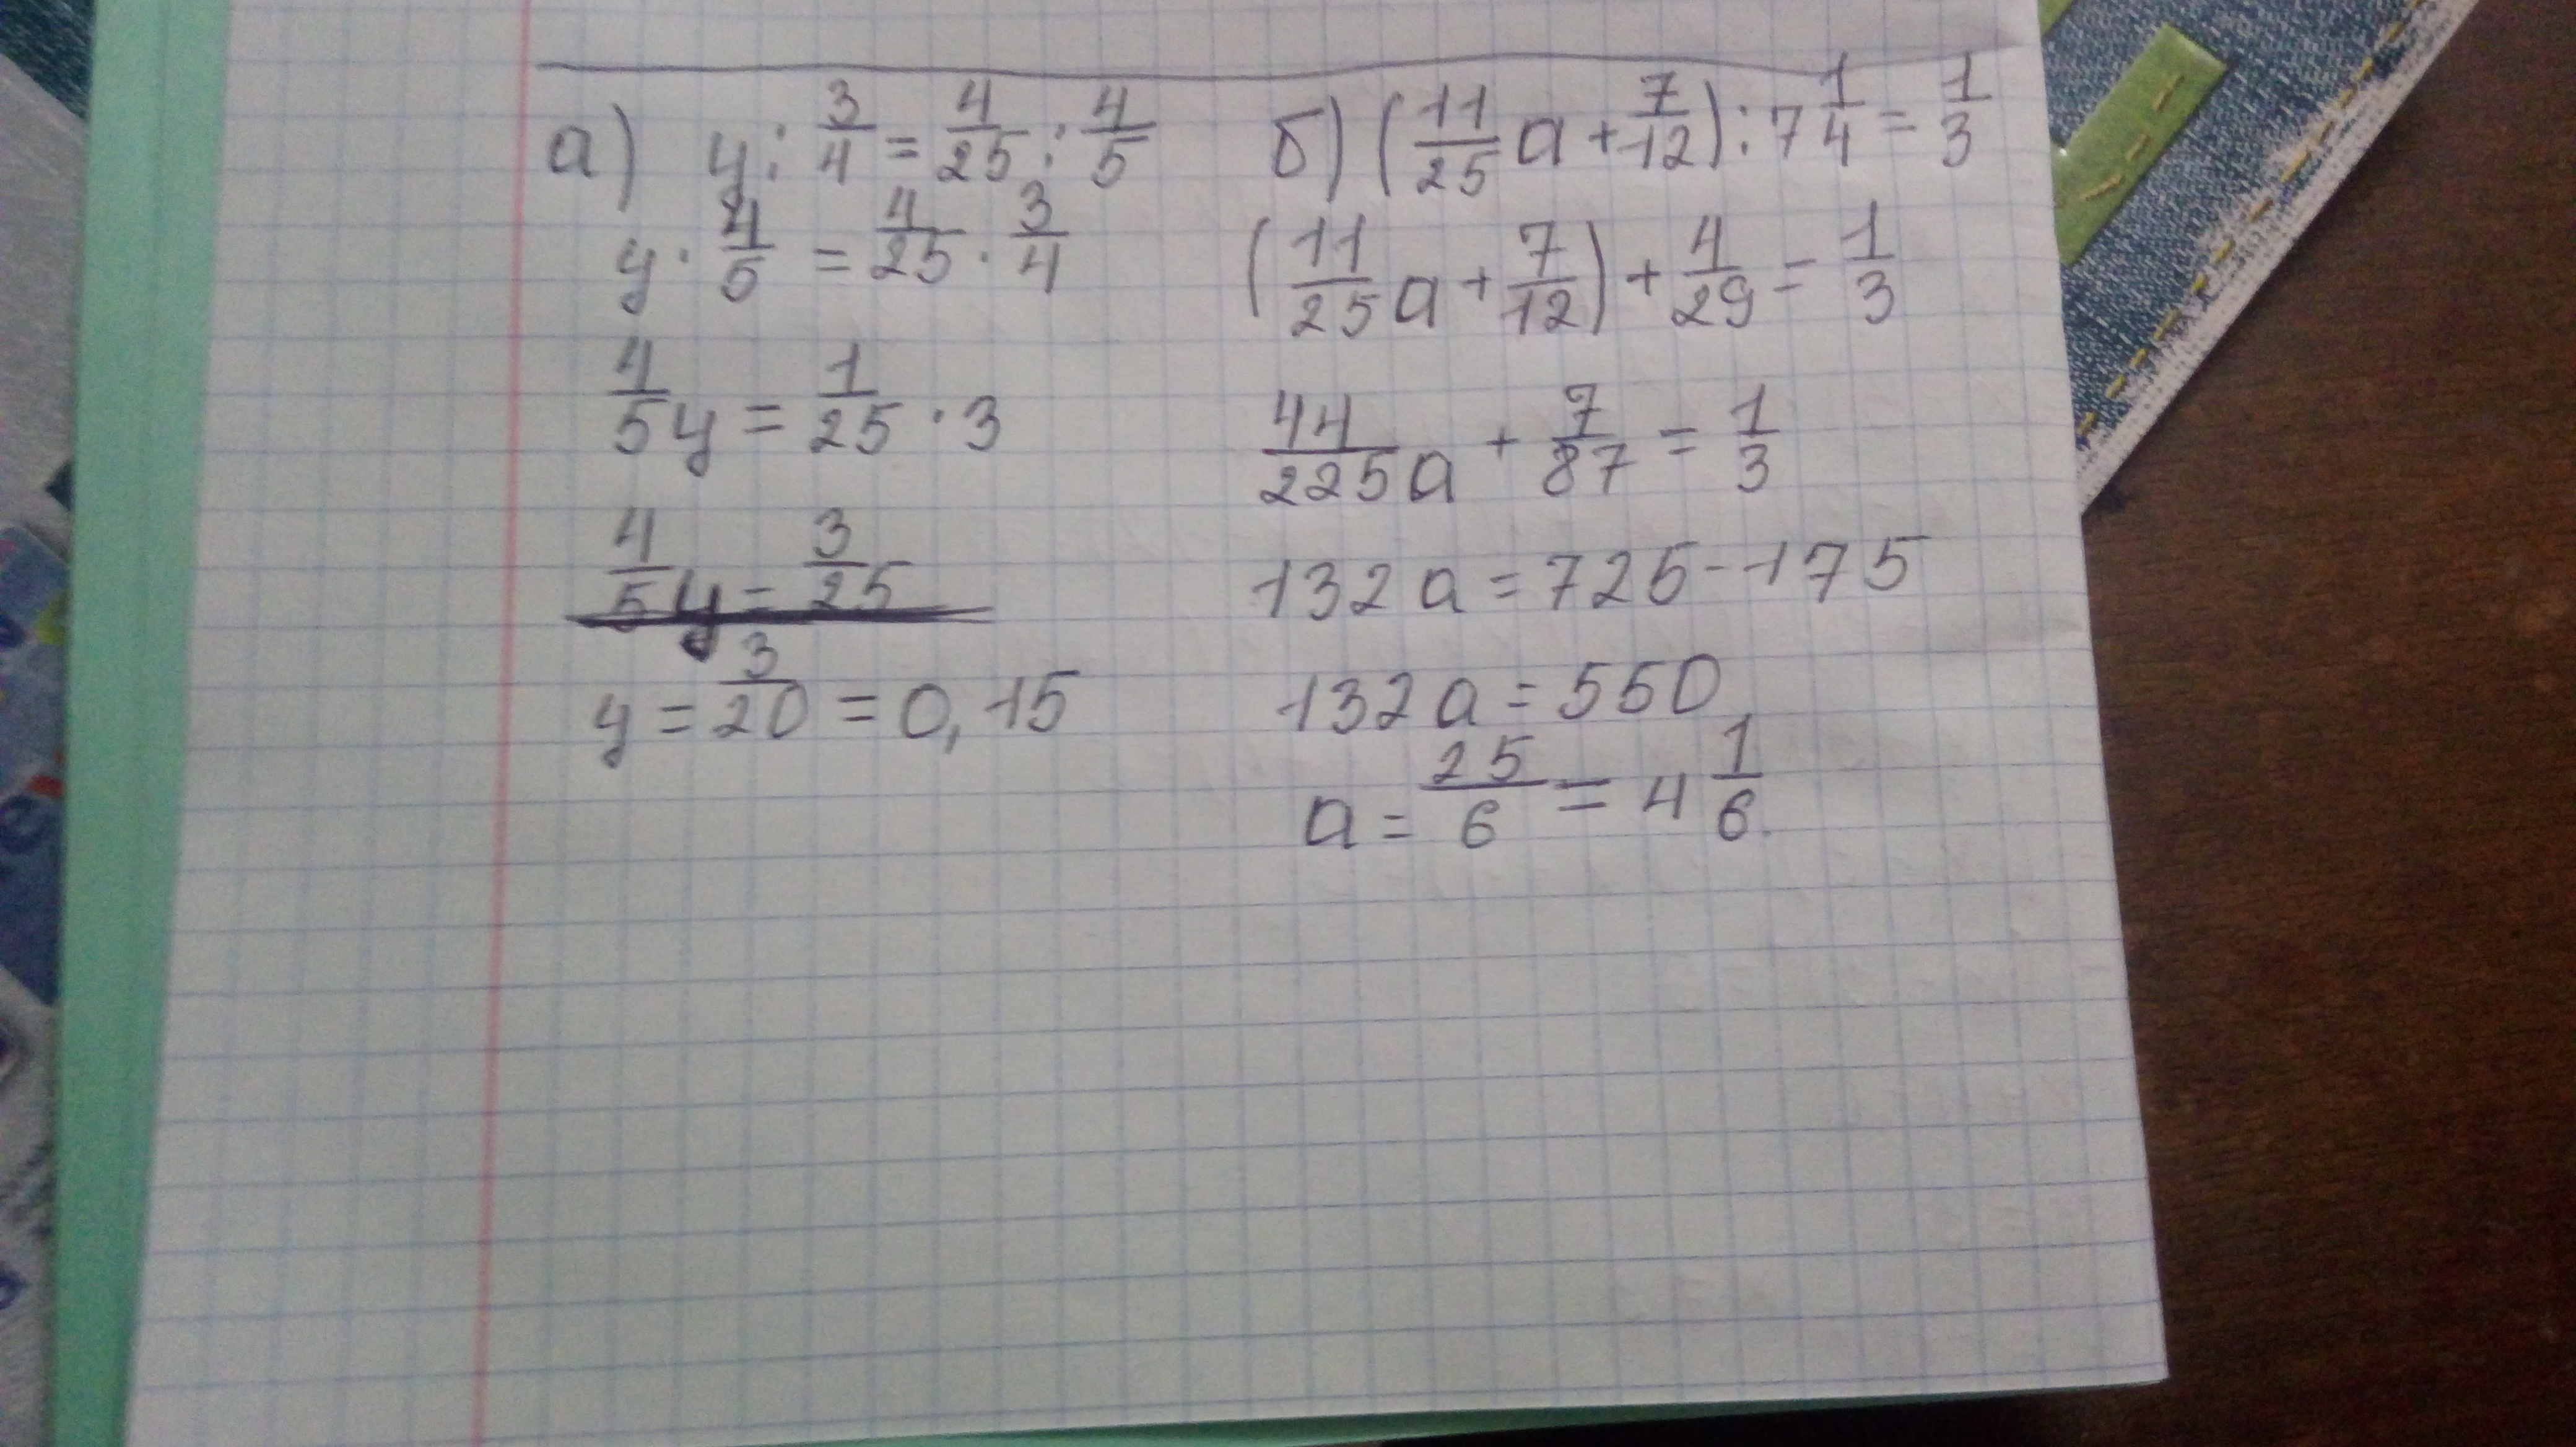 а) y : 3/4 = 4/25 : 4/5
y · 4/5 = 4/25 · 3/4
4/5 y = 1/25 · 3
4/5 y = 3/25
y = 3/20 = 0,15
б) (11/25 a + 7/12) : 7 1/4 = 1/3
(11/25 a + 7/12) + 4/29 = 1/3
44/225 a + 7/87 = 1/3
132 a = 725 - 175
132 a = 550
a = 25/6 = 4 1/6